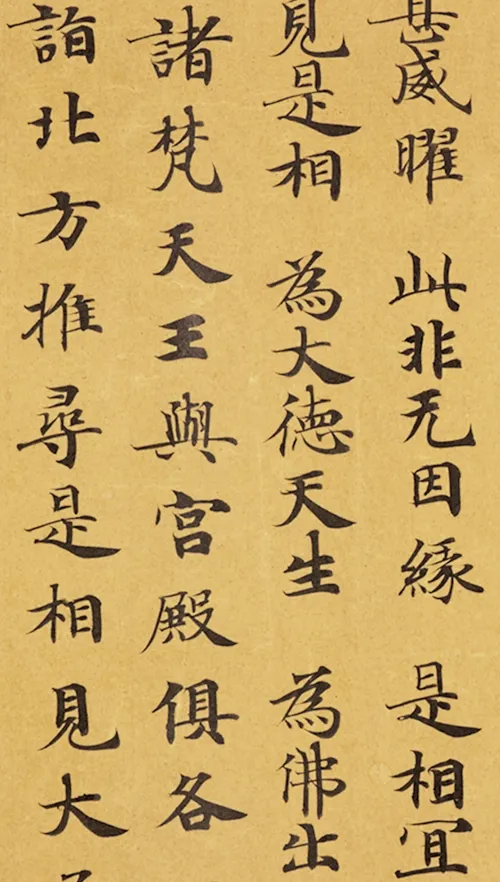 甚威曜 此非无因緣 是相冝
見是相 為大德天生 為佛出
諸梵天王與宮殿俱各
詣北方推尋是相見大